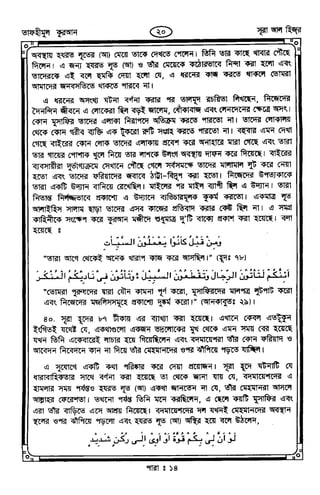 তাফহীমুল কুরআন
২০
সূরা আল হিজর
অবস্থায় হযরত লূতের (আ) মেয়ে তাকে দেখতে পেলেন। তিনি তার কাছে খাবার পৌঁছে
দিলেন। এ জন্য হযরত লূত (আ) ও তাঁর মেয়েকে কঠোরভাবে নিন্দা করা হলো এবং
তাদেরকে এই বলে হুমকি দেয়া হলো যে, এ ধরনের কাজ করতে থাকলে তোমরা
আমাদের জনবসতিতে থাকতে পারবে না।
এ ধরনের অসংখ্য ঘটনা বর্ণনা করার পর তালমূদ রচয়িতা লিখছেন, নিজেদের
দৈনন্দিন জীবনে এ লোকেরা ছিল বড়ই জালেম, ধোঁকাবাজ এবং লেনদেনের ক্ষেত্রে অসৎ।
কোন মুসাফির তাদের এলাকা নিরাপদে অতিক্রম করতে পারতো না। তাদের লোকালয়
থেকে কোন গরীব ব্যক্তি এক টুকরো রুটি সংগ্রহ করতে পারতো না। বহুবার এমন দেখা
গেছে বাইরের কোন লোক তাদের এলাকায় প্রবেশ করে অনাহারে মারা গেছে এবং তারা
তার গায়ের পোশাক খুলে নিয়ে তার লাশকে উলংগ অবস্থায় দাফন করে দিয়েছে। বাইরের
ব্যবসায়ীরা দুর্ভাগ্যক্রমে সেখানে পৌঁছে গেলে সর্বসমক্ষে তাদের মালামাল লুট করে নেয়া
হতো এবং তাদের ফরিয়াদের জবাবে ঠাট্টা-বিদ্রূপ করা হতো। নিজেদের উপত্যকাকে
তারা একটি উদ্যান বানিয়ে রেখেছিল। মাইলের পর মাইল ব্যাপী ছিল এ উদ্যান। তারা
নিতান্ত নির্লজ্জভাবে প্রকাশ্যে এ উদ্যানে ব্যভিচারমূলক কুকর্ম করতো। একমাত্র লূত
আলাইহিস সালাম ছাড়া তাদের এসব কাজের প্রতিবাদ করার কেউ ছিল না। এ সমগ্র
কাহিনীকে সংক্ষেপ করে কুরআন মজীদে শুধুমাত্র দু'টি বাক্যে প্রকাশ করা হয়েছে। বলা
হয়েছে :
وَمِنْ قَبْلُ كَانُوْا يَعْمَلُوْنَ السَّيِّاٰتِ
"তারা আগে থেকেই অনেক খারাপ কাজ করে আসছিল।" (হূদ: ৭৮)
اَئِنَّكُمْ لَتَاْتُوْنَ الرِّجَالَ وَتَقْطَعُوْنَ السَّبِيْلَ ۙ وَتَاْتُوْنَ فِىْ نَادِيْكُمُ الْمُنْكَرَ
"তোমরা পুরুষদের দ্বারা যৌন কামনা পূর্ণ করো, মুসাফিরদের মালপত্র লুটপাট করো
এবং নিজেদের মজলিসসমূহে প্রকাশ্যে দুষ্কর্ম করো।" (আনকাবুত: ২৯)।
৪০. সূরা হূদের ৮৭ টীকায় এর ব্যাখ্যা করা হয়েছে। এখানে কেবল এতটুকুন
ইংগিতই যথেষ্ট যে, একথাগুলো একজন ভদ্রলোকের মুখ থেকে এমন সময় বের হয়েছে
যখন তিনি একেবারেই লাচার হয়ে গিয়েছিলেন এবং বদমায়েশরা তাঁর কোন ফরিয়াদ ও
আবেদন নিবেদনে কান না দিয়ে তাঁর মেহমানদের ওপর ঝাঁপিয়ে পড়তে যাচ্ছিল।
এ সুযোগে একটি কথা পরিষ্কার করে দেয়া প্রয়োজন। সূরা হূদে ঘটনাটি যে
ধারাবাহিকতার সাথে বর্ণনা করা হয়েছে তা থেকে জানা যায় যে, বদমায়েশদের এ
হামলার সময় পর্যন্তও হযরত লূত (আ) একথা জানতেন না যে, তাঁর মেহমানরা আসলে
আল্লাহর ফেরেশতা। তখনো পর্যন্ত তিনি মনে করছিলেন, এ ছেলে কয়টি মুসাফির এবং
এরা তাঁর বাড়িতে এসে আশ্রয় নিয়েছে। বদমায়েশদের দল যখনই মেহমানদের অবস্থান
স্থলের ওপর ঝাঁপিয়ে পড়লো এবং হযরত লূত (আ) অস্থির হয়ে বলে উঠলেন,
لَوْ اَنَّ لِىْ بِكُمْ قُوَّةً اَوْ اٰوِىْ اِلٰى رُكْنٍ شَدِيْدٍ
পারা : ১৪